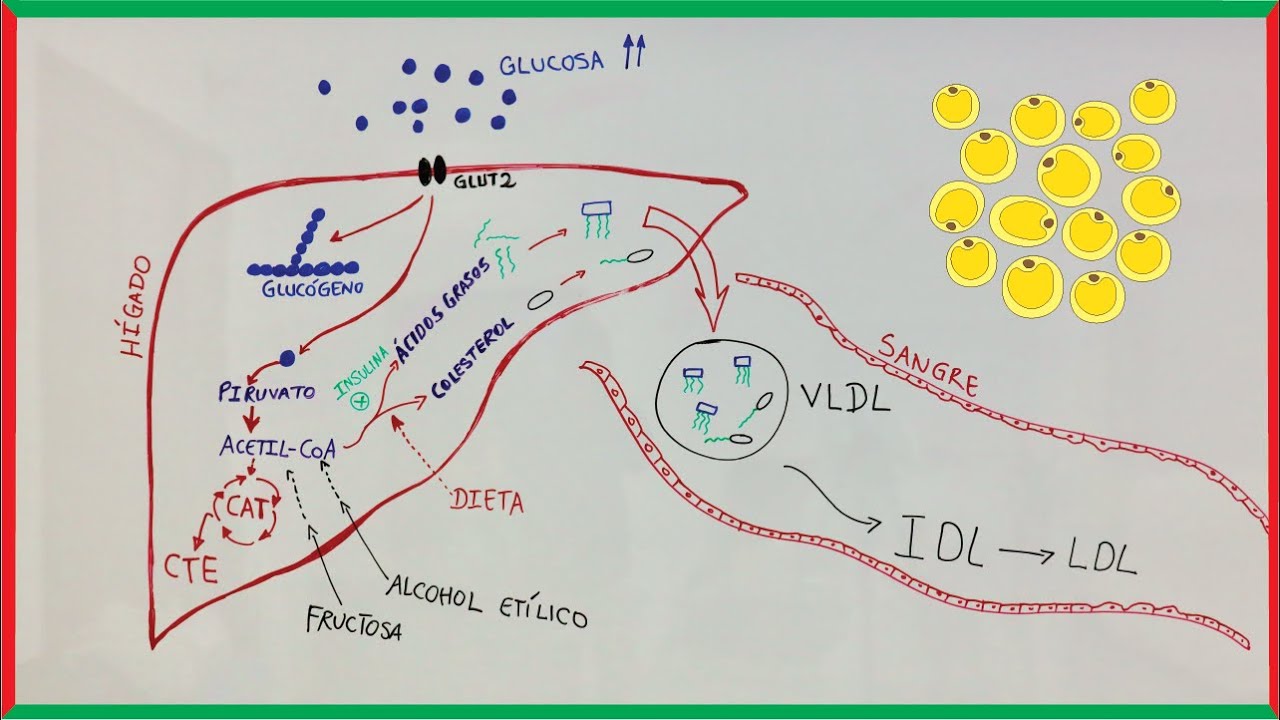 GLUCOSA
GLUT2
HÍGADO
GLUCÓGENO
PIRUVATO
ACETIL-CoA
CAT
CTE
INSULINA
ÁCIDOS GRASOS
COLESTEROL
DIETA
ALCOHOL ETÍLICO
FRUCTOSA
SANGRE
VLDL
IDL
LDL